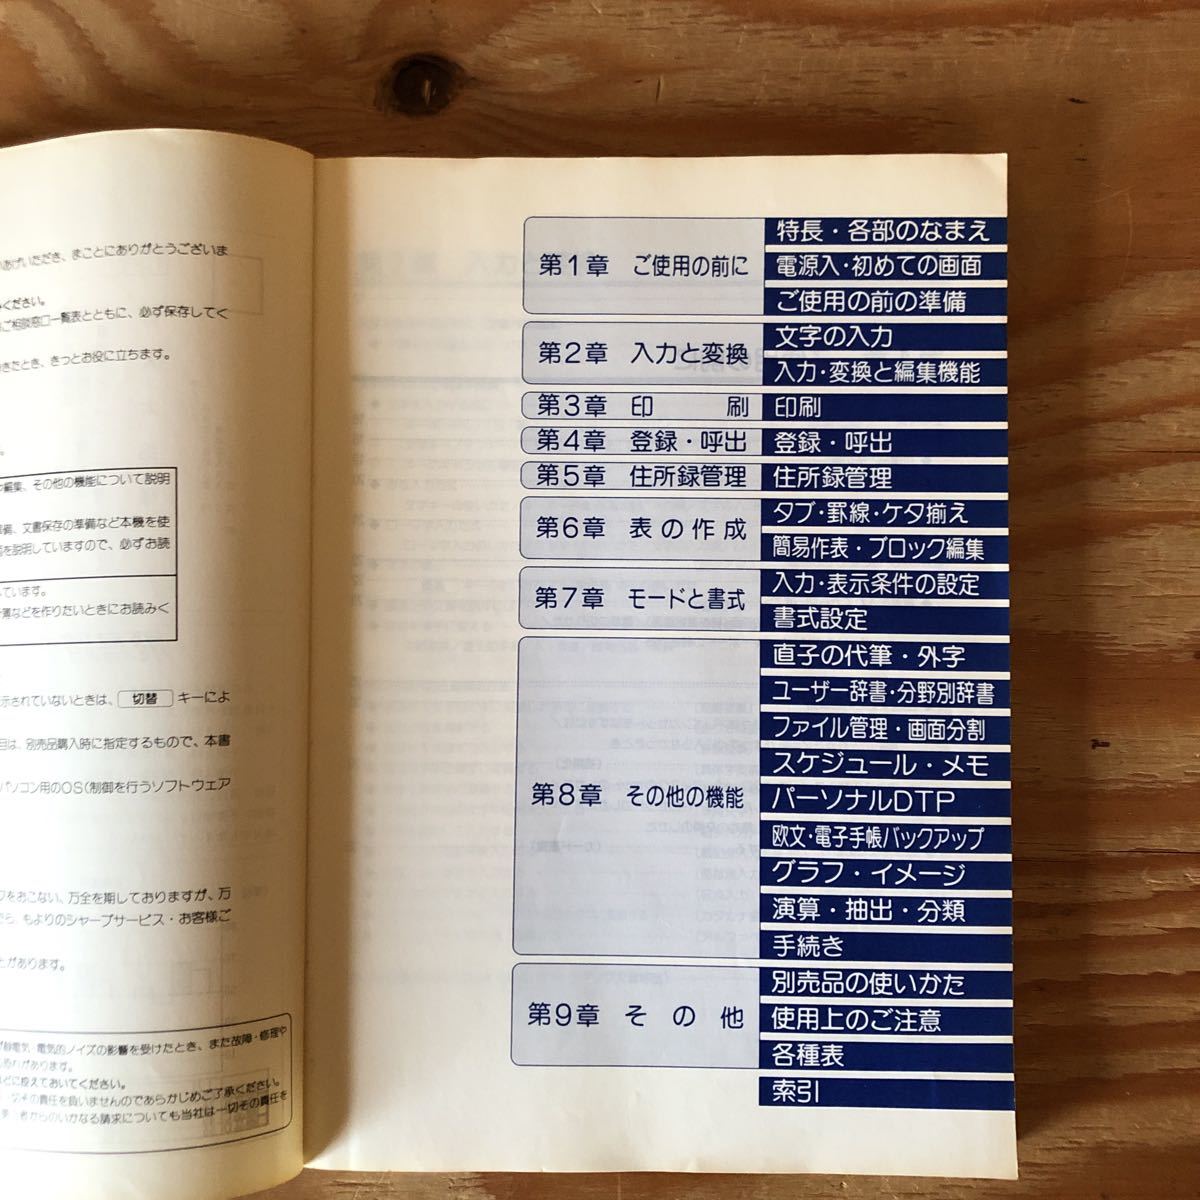 あげいただき、まことにありがとうございま
ください。
ご相談窓口一覧表とともに、必ず保存してく
きたとき、きっとお役に立ちます。
編集、その他の機能について説明
備、文書保存の準備など本機を使
を説明していますので、必ずお読
しています。
簿などを作りたいときにお読みく
示されていないときは、 切替 キーによ
目は、別売品購入時に指定するもので、本書
パソコン用のOS(制御を行うソフトウェア
をおこない、万全を期しておりますが、万
ら、もよりのシャープサービス・お客様ご
とがあります。
静電気・電気的ノイズの影響を受けたとき、また故障・修理や
れがあります。
どに控えておいてください。
切その責任を負いませんのであらかじめご了承ください。
者からのいかなる請求についても当社は一切その責任を
第1章 ご使用の前に
特長・各部のなまえ
電源入・初めての画面
ご使用の前の準備
第2章 入力と変換
文字の入力
入力・変換と編集機能
第3章 印 刷 印刷
第4章 登録・呼出 登録・呼出
第5章 住所録管理 住所録管理
第6章 表の作成
タブ・罫線・ケタ揃え
簡易作表・ブロック編集
第7章 モードと書式
入力・表示条件の設定
書式設定
第8章 その他の機能
直子の代筆・外字
ユーザー辞書・分野別辞書
ファイル管理・画面分割
スケジュール・メモ
パーソナルDTP
欧文・電子手帳バックアップ
グラフ・イメージ
演算・抽出・分類
手続き
第9章 その他
別売品の使いかた
使用上のご注意
各種表
索引